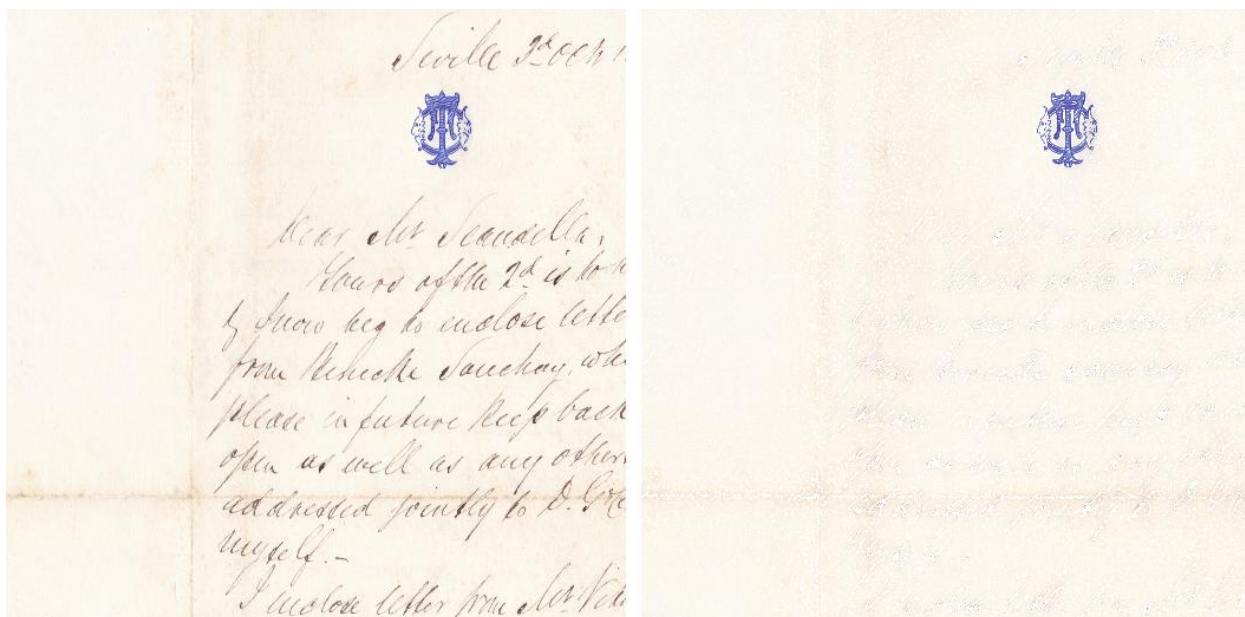 Seville 3d Oct
Dear Mr Scandella,
Yours of the 2d is to h
& I now beg to enclose lette
from Benecke Souchay, whi
please in future keep back
open as well as any others
addressed jointly to D.
myself. –
I enclose letter from Mr